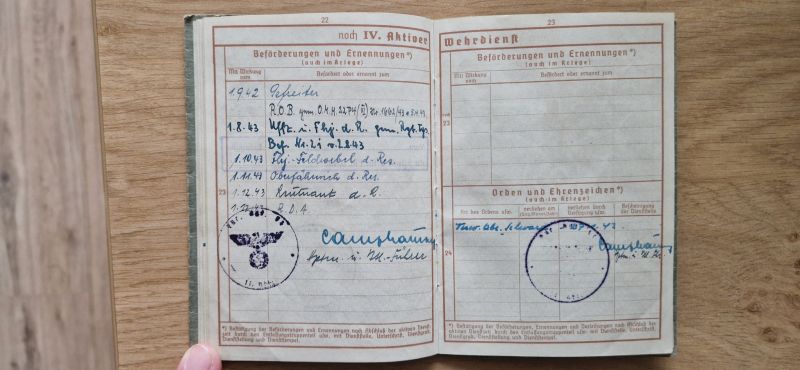 22
noch IV. Aktiver
Beförderungen und Ernennungen*)
(auch im Kriege)
Mit Wirkung vom
Befördert oder ernannt zum
1.9.42 Gefreiter
R.O.B. gem. O.K.H. 2274/
1.8.43 Uffz. u. Fhj. d. R. gem. Rgt. Tgs.
Bef. Nr. 21 v. 2.8.43
1.10.43 Fhj.-Feldwebel d. Res.
1.11.43 Oberfähnrich d. Res.
1.12.43 Leutnant d. R.
R.D.A
23
Hptm. u. Führer
*) Bestätigung der Beförderungen und Ernennungen nach Abschluß der aktiven Dienstzeit durch den Entlassungstruppenteil usw. mit Dienststelle, Unterschrift, Dienstgrad, Dienststellung und Dienststempel.
23
Wehrdienst
Beförderungen und Ernennungen*)
(auch im Kriege)
Mit Wirkung vom
Befördert oder ernannt zum
noch
23
Orden und Ehrenzeichen*)
(auch im Kriege)
Art des Ordens usw.
verliehen am
verliehen durch
Bestätigung der Dienststelle
Verw. Abz. schwarz
24
Hptm. u.
*) Bestätigung der Beförderungen, Ernennungen und Verleihungen nach Abschluß der aktiven Dienstzeit durch den Entlassungstruppenteil usw. mit Dienststelle, Unterschrift, Dienstgrad, Dienststellung und Dienststempel.